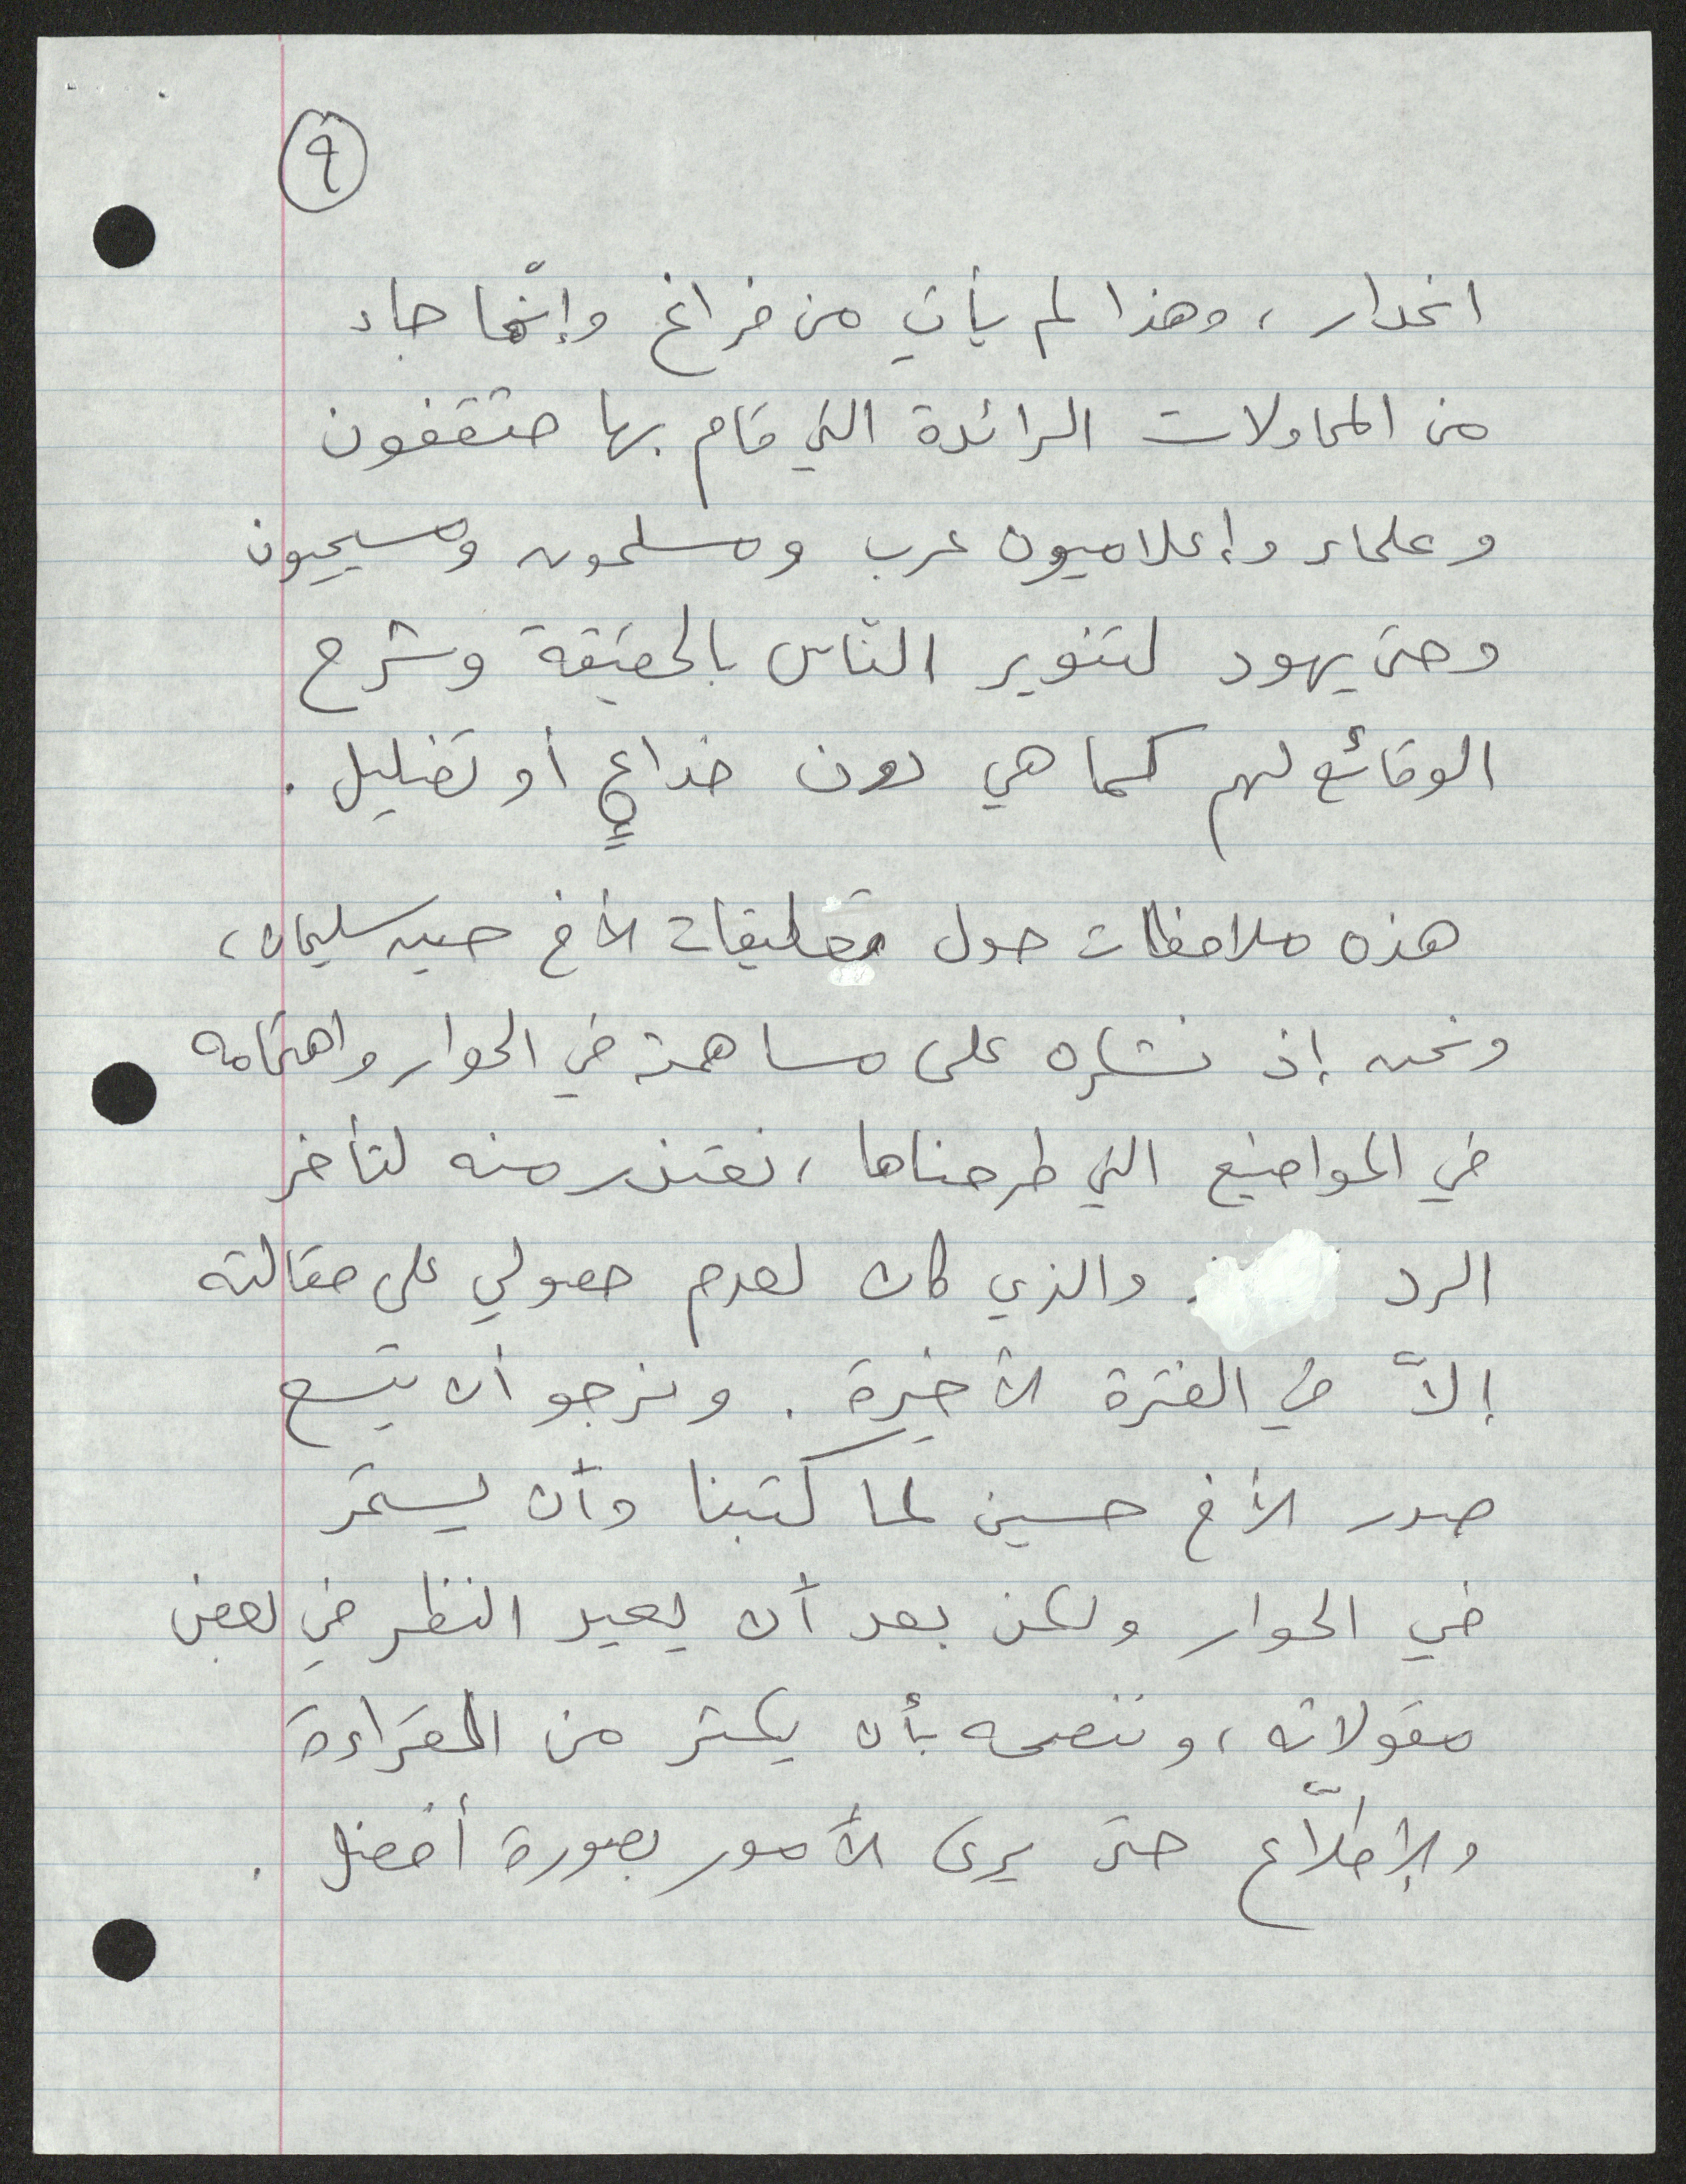 ٩
انحدار، وهذا لم يأتِ من فراغ وإنّما جاء
من المحاولات الرائدة التي قام بها مثقفون
وعلماء وإعلاميون عرب ومسلمون ومسيحيون
وحتى يهود لتنوير الناس بالحقيقة وشرح
الوقائع لهم كما هي دون خداعٍ أو تضليل.
هذه ملاحظات حول تعليقات الأخ حسين سليمان،
ونحن إذ نشكره على مساهمته في الحوار واهتمامه
في المواضيع التي طرحناها، نعتذر منه لتأخر
الرد والذي كان لعدم حصولي على مقالته
إلاّ في الفترة الأخيرة. ونرجو أن يتسع
صدر الأخ حسين لما كتبنا وأن يستمر
في الحوار ولكن بعد أن يعيد النظر في بعض
مقولاته، وننصحه بأن يكثر من القراءة
والإطلاّع حتى يرى الأمور بصورة أفضل.